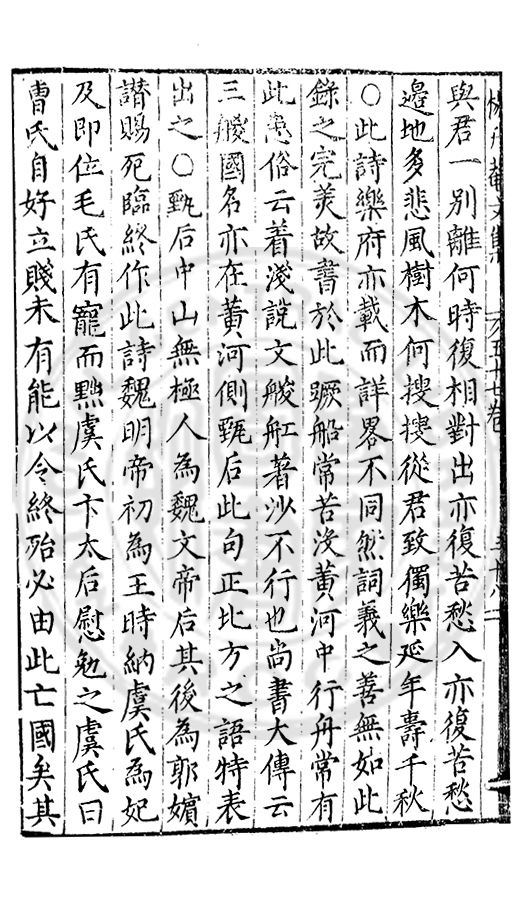 與君一別離何時復相對出亦復苦愁入亦復苦愁
邊地多悲風樹木何搜搜從君致獨樂延年壽千秋
○此詩樂府亦載而詳畧不同然詞義之善無如此
錄之完美故書於此蹶船常苦没黄河中行舟常有
此患俗云着淺說文艐舡著沙不行也尚書大傳云
三艐國名亦在黄河側甄后此句正比方之語特表
出之○甄后中山無極人為魏文帝后其後為郭嬪
譖賜死臨終作此詩魏明帝初為王時納虞氏為妃
及即位毛氏有寵而黜虞氏卞太后慰勉之虞氏曰
曹氏自好立賤未有能以令終殆必由此亡國矣其
文集
五十七卷